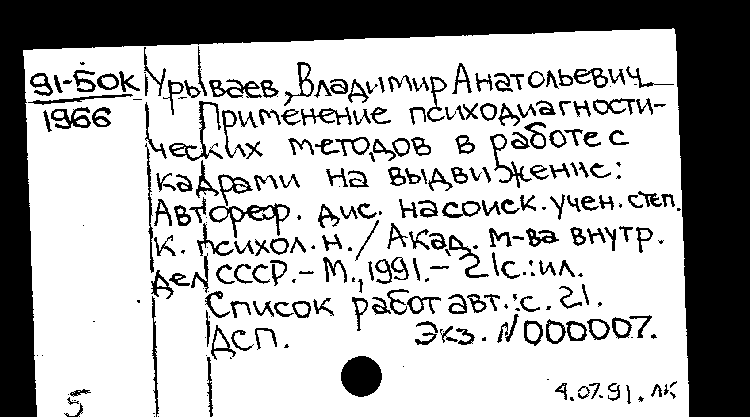 91-БОК Урываев, Владимир Анатольевич
1966 Применение психодиагности-
ческих методов в работе с
кадрами на выдвижение:
Автореф. дис. на соиск. учен. степ.
к. психол. н. / Акад. м-ва внутр.
дел СССР. - М., 1991. - 21с.: ил.
Список работ авт.: с. 21.
ДСП. Экз. N000007.
5 4.07.91. лк